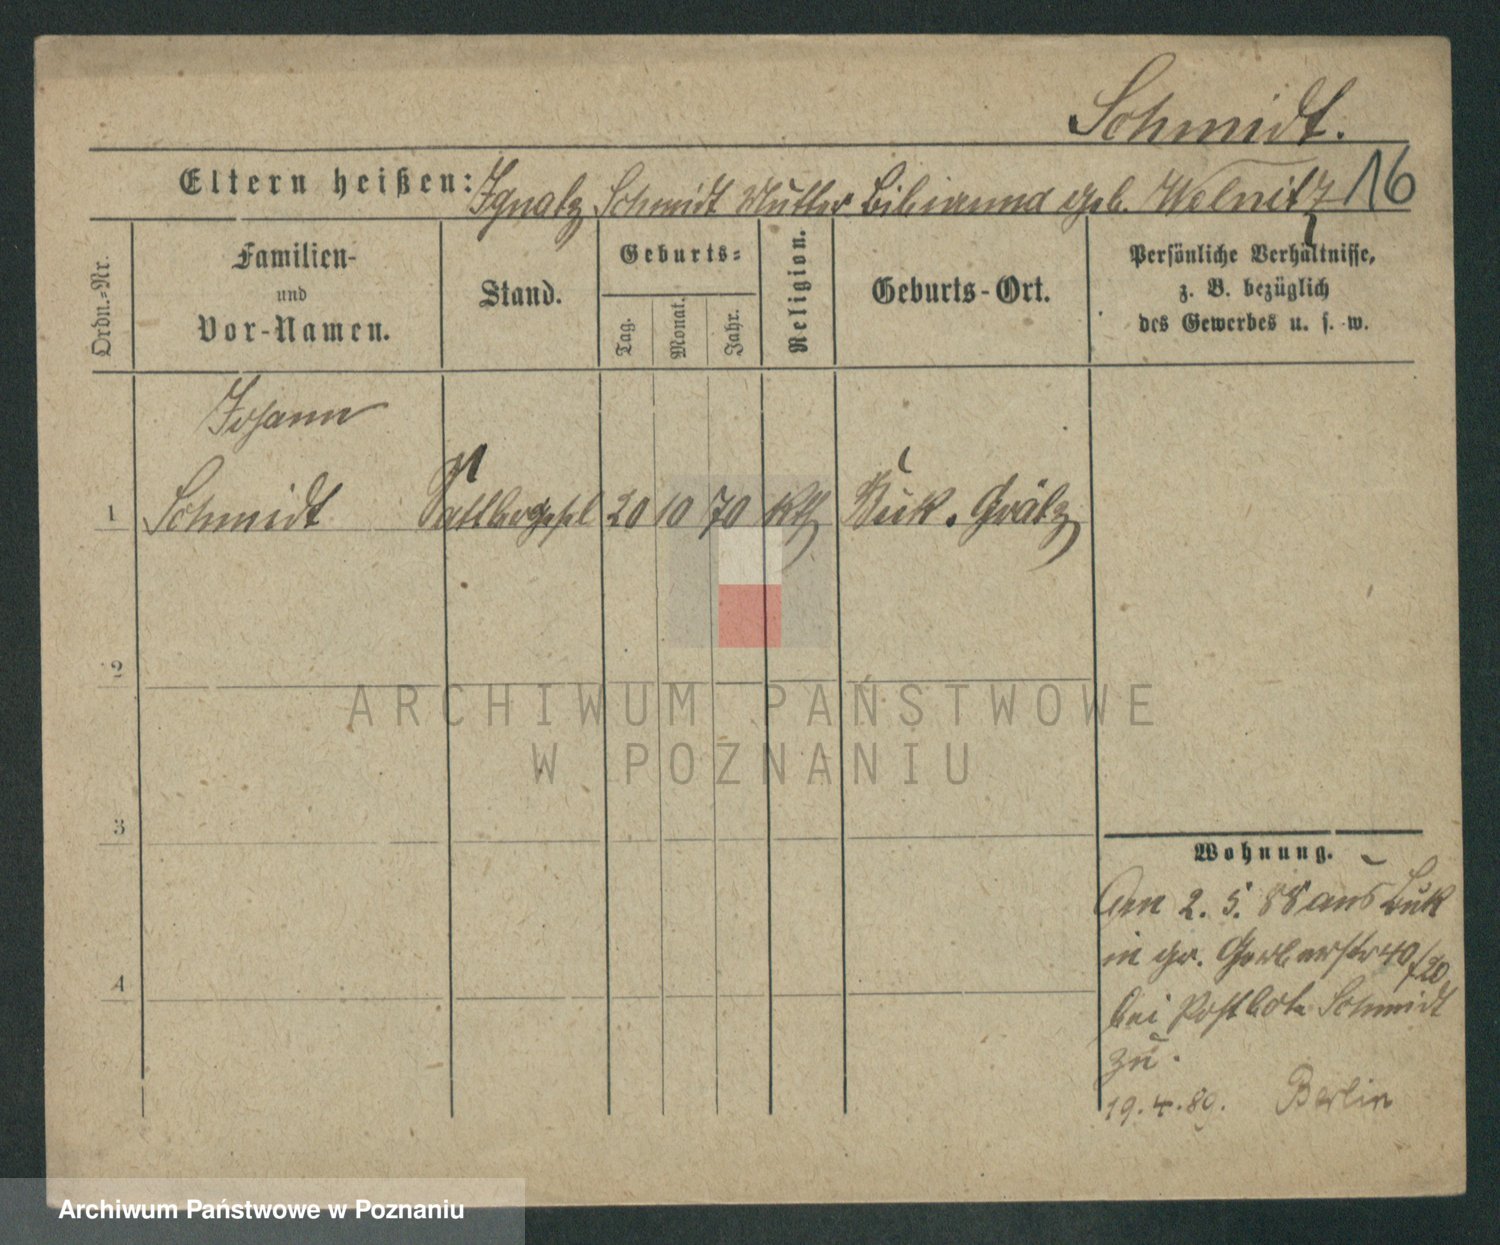 Schmidt.
Eltern heißen: Ignatz Schmidt Mutter Bibianna geb. Welnitz
16
Ordn.=Nr.
Familien-
und
Vor-Namen.
Stand.
Geburts=
Tag.
Monat.
Jahr.
Religion.
Geburts-Ort.
Persönliche Verhältnisse,
z. B. bezüglich
des Gewerbes u. s. w.
Johann
1 Schmidt Sattlergesel 20 10 70 kth Buk. Grätz
2
3
4
Wohnung.
Am 2. 5. 88 aus Buk
in gr. Gerberstr 40/20
bei Postbote Schmidt
zu.
19.4.89. Berlin
ARCHIWUM PAŃSTWOWE
W POZNANIU
Archiwum Państwowe w Poznaniu